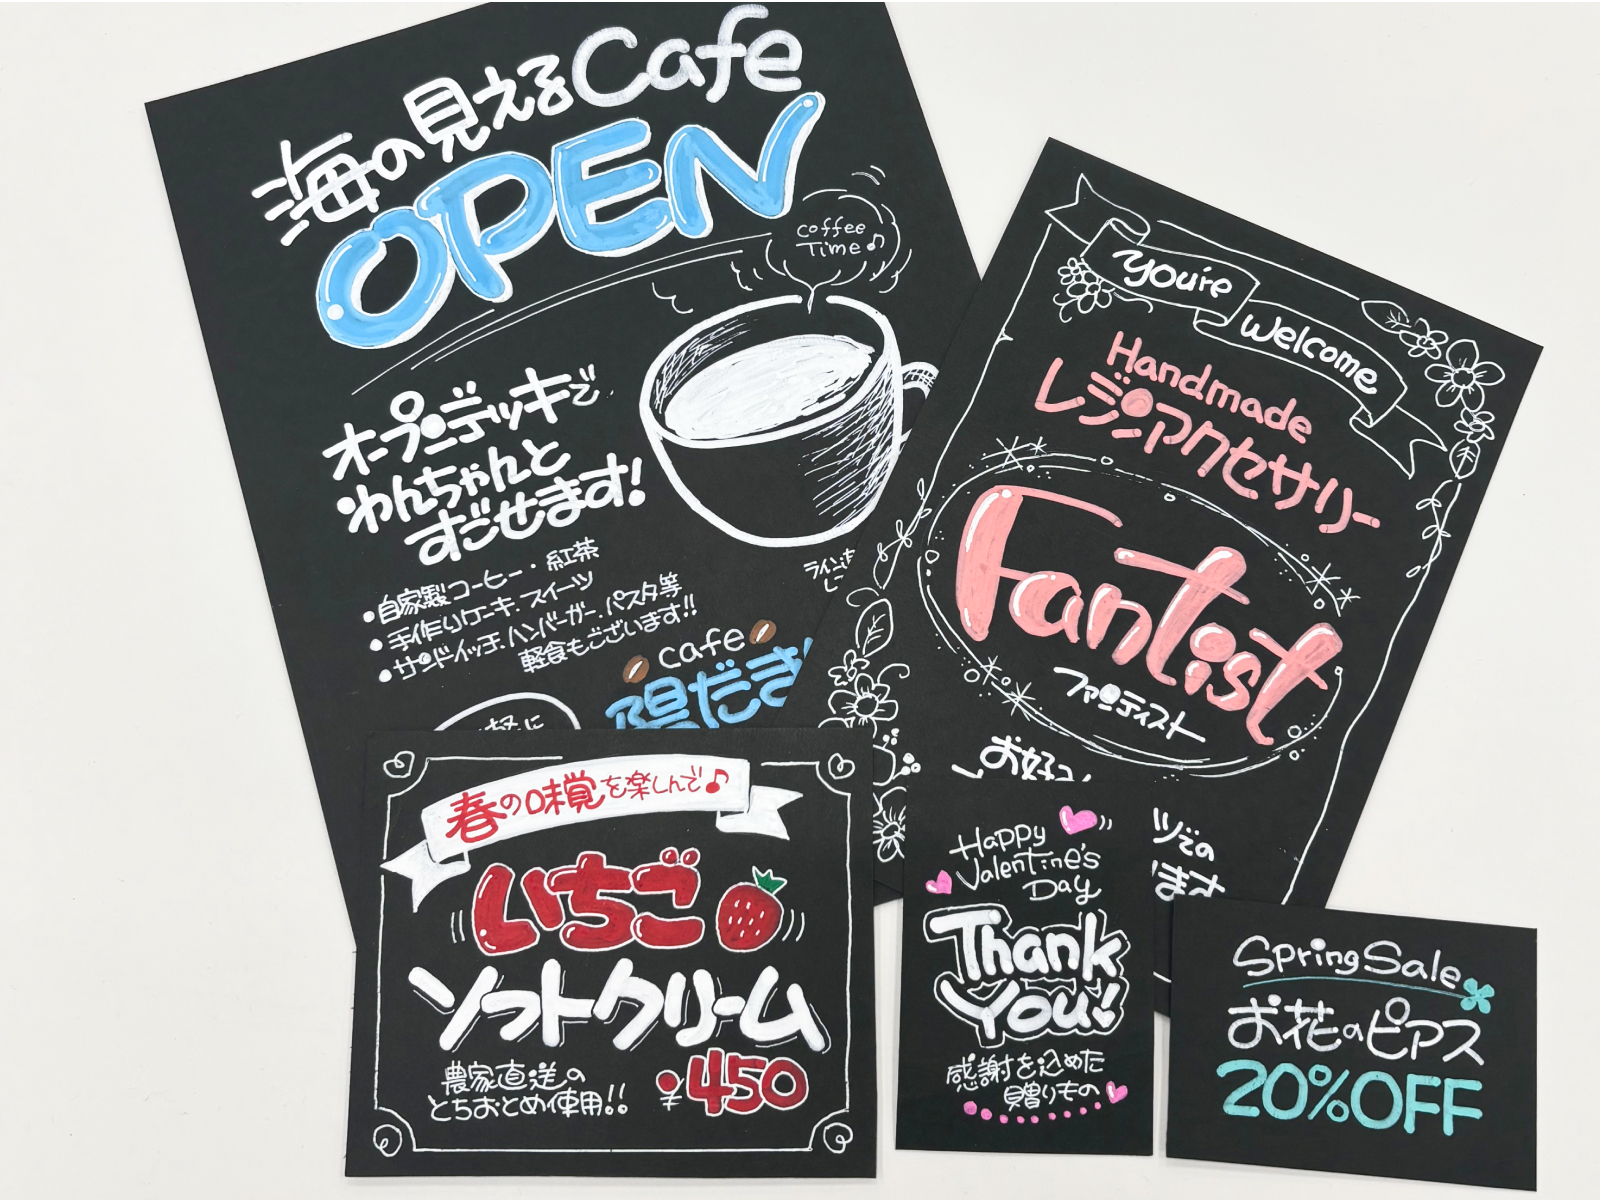 海の見えるCafe
OPEN
coffee
Time♪
オープンデッキで
わんちゃんと
すごせます!
•自家製コーヒー・紅茶
•手作りケーキ・スイーツ
•サンドイッチ・ハンバーガー・パスタ等
軽食もございます!!
cafe
陽だま
you're
welcome
Handmade
レジンアクセサリー
Fantist
ファンティスト
お好み
春の味覚を楽しんで♪
いちご
ソフトクリーム
農家直送の
とちおとめ使用!!
¥450
Happy
Valentine's
Day
Thank
You!
感謝を込めた
贈りもの
Spring Sale
お花のピアス
20%OFF